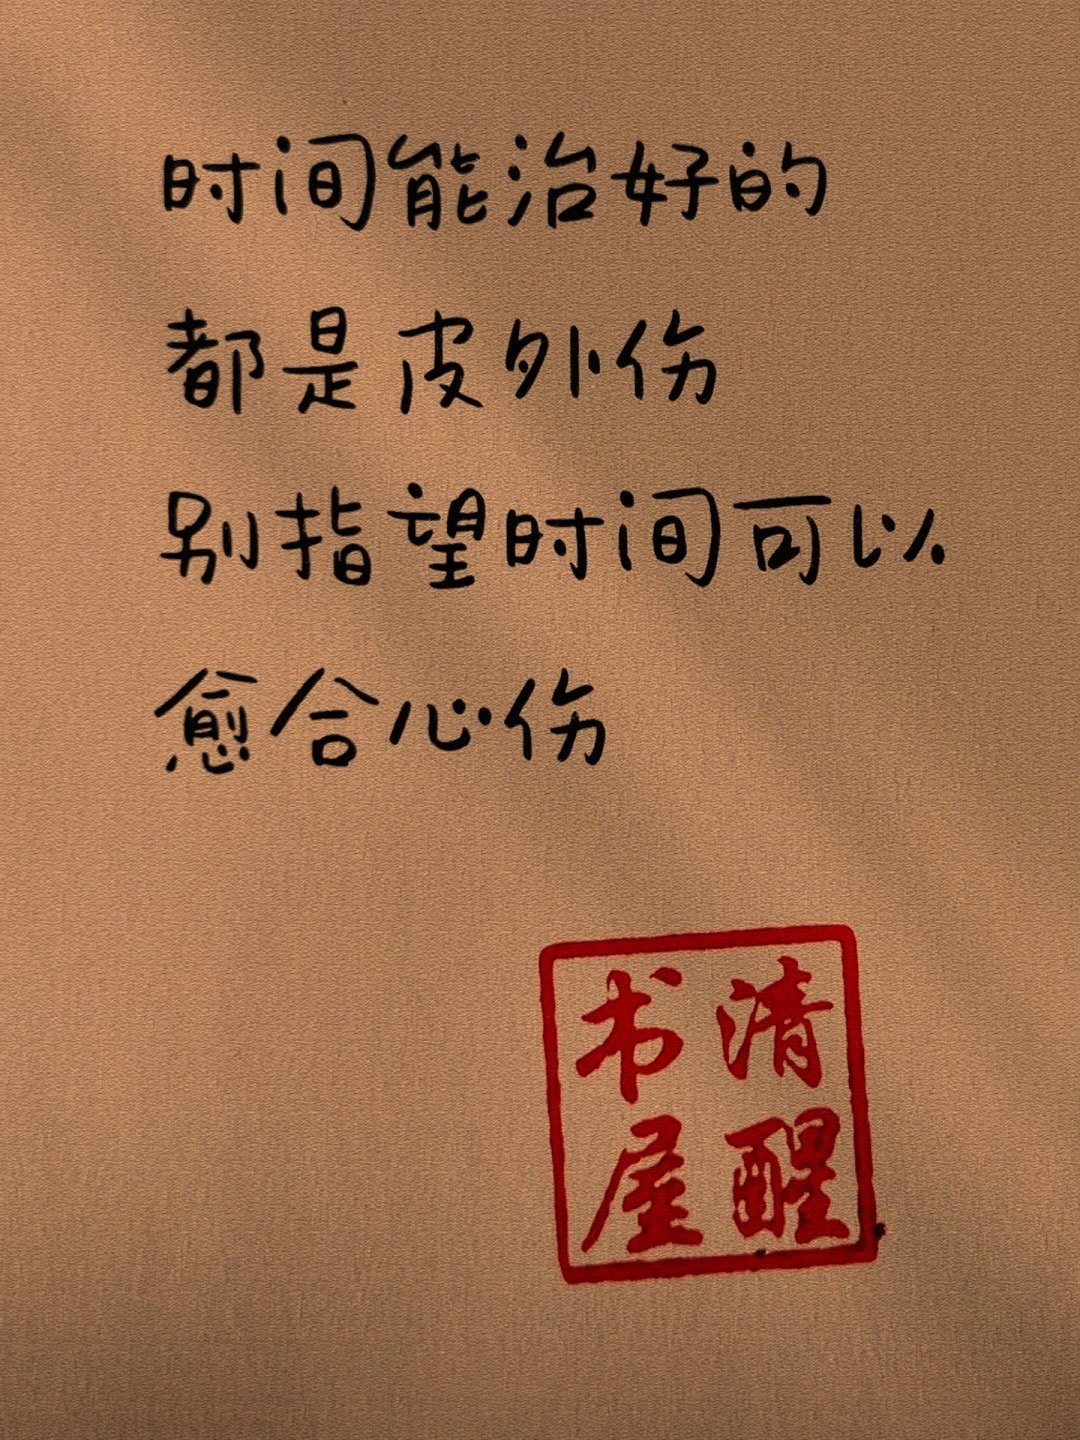 时间能治好的
都是皮外伤
别指望时间可以
愈合心伤
清醒
书屋